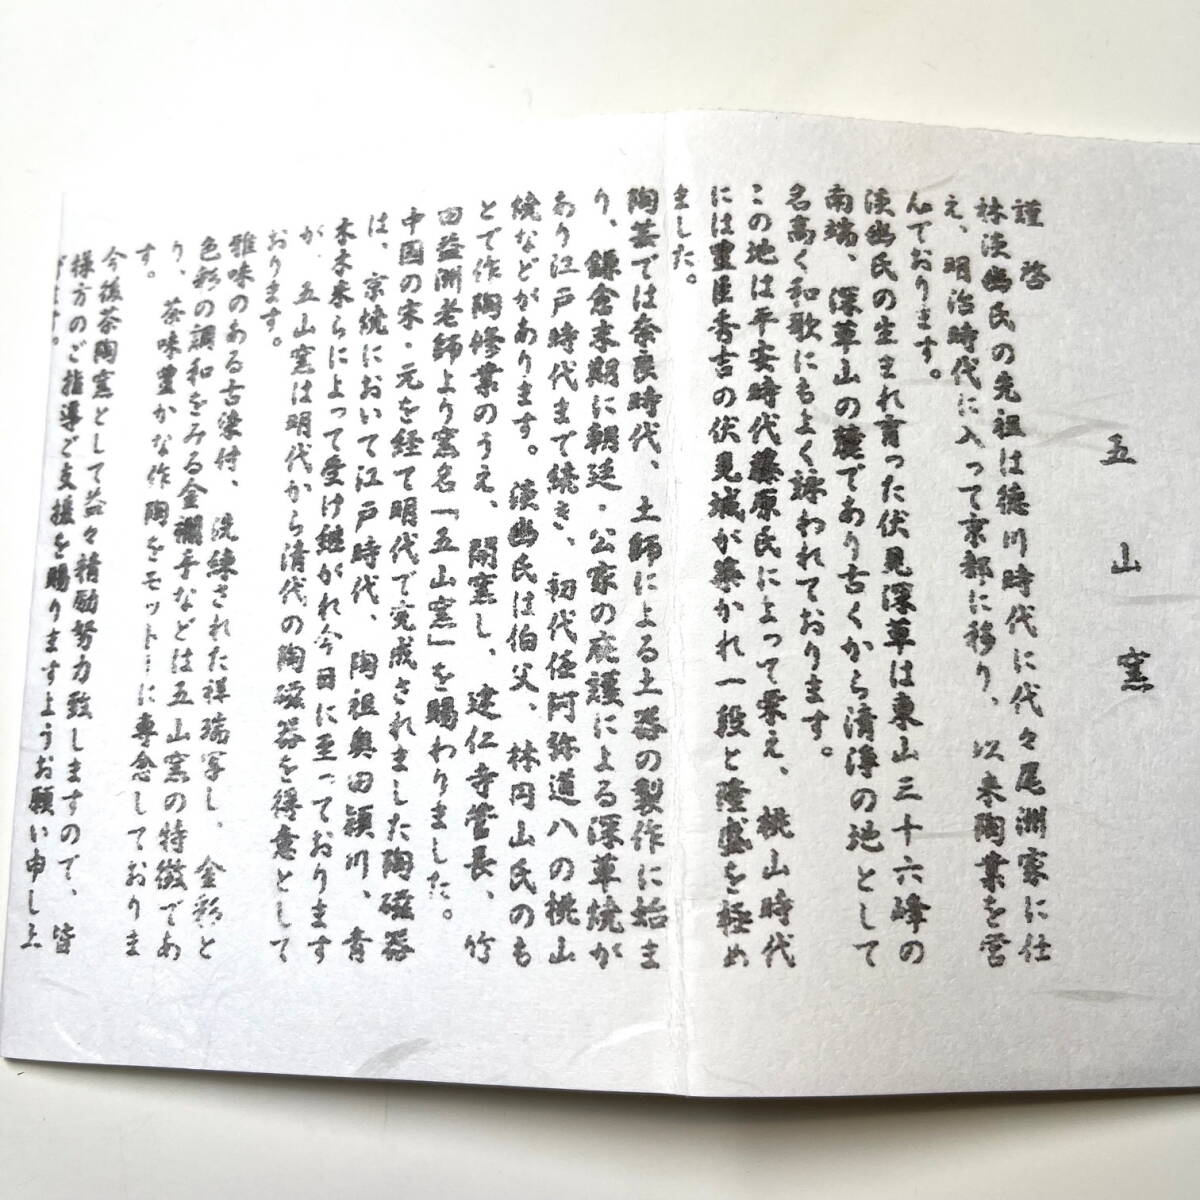 五山窯
謹啓
林淡幽氏の先祖は徳川時代に代々尾洲家に仕
え、明治時代に入って京都に移り、以来陶業を営
んでおります。
淡幽氏の生まれ育った伏見深草は東山三十六峰の
南端、深草山の麓であり古くから清浄の地として
名高く和歌にもよく詠われております。
この地は平安時代藤原氏によって栄え、桃山時代
には豊臣秀吉の伏見城が築かれ一段と隆盛を極め
ました。
陶芸では奈良時代、土師による土器の製作に始ま
り、鎌倉末期に朝廷・公家の庇護による深草焼が
あり江戸時代まで続き、初代仁阿弥道八の桃山
焼などがあります。淡幽氏は伯父、林円山氏のも
とで作陶修業のうえ、開窯し、建仁寺管長、竹
田益洲老師より窯名「五山窯」を賜わりました。
中国の宋・元を経て明代で完成されました陶磁器
は、京焼において江戸時代、陶祖奥田頴川、青
木木米らによって受け継がれ今日に至っております
が、五山窯は明代から清代の陶磁器を得意として
おります。
雅味のある古染付、洗練された祥瑞写し、金彩と
色彩の調和をみる金襴手などは五山窯の特徴であ
り、茶味豊かな作陶をモットーに専念しておりま
す。
今後茶陶窯として益々精励努力致しますので、皆
様方のご指導ご支援を賜りますようお願い申し上
げます。